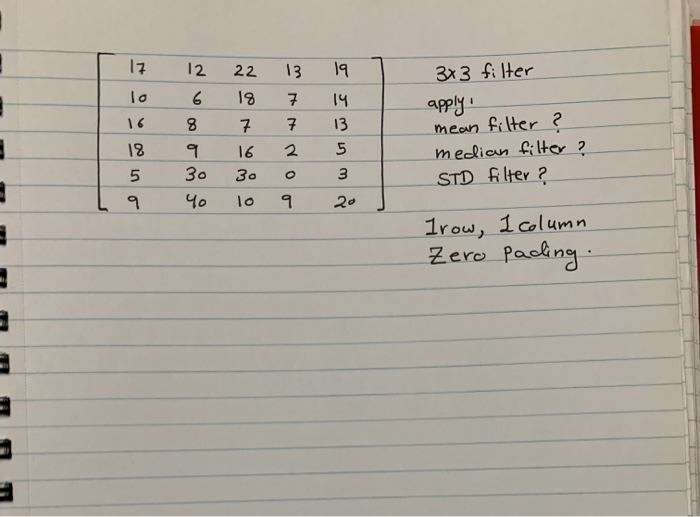 17 12 22 13 19
10 6 18 7 14
16 8 7 7 13
18 9 16 2 5
5 30 30 0 3
9 40 10 9 20
3x3 filter
apply:
mean filter ?
median filter ?
STD filter ?
1row, 1 column
Zero Pading.